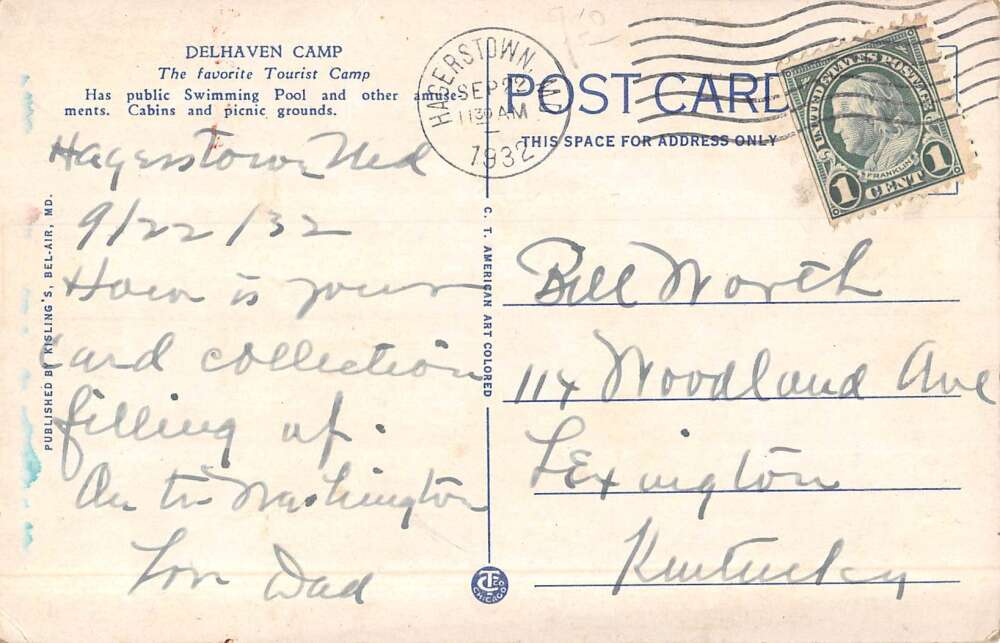 DELHAVEN CAMP
The favorite Tourist Camp
Has public Swimming Pool and other amuse-
ments. Cabins and picnic grounds.
Hagerstown Md
9/22/32
How is your
card collection
filling up.
On to Washington
Love Dad
PUBLISHED BY KISLING'S, BEL-AIR, MD.
C. T. AMERICAN ART COLORED
HAGERSTOWN, MD
SEP 22
1130 AM
1932
POST CARD
THIS SPACE FOR ADDRESS ONLY
UNITED STATES POSTAGE
FRANKLIN
1 CENT 1
Bill Worth
114 Woodland Ave
Lexington
Kentucky
CT CO
CHICAGO